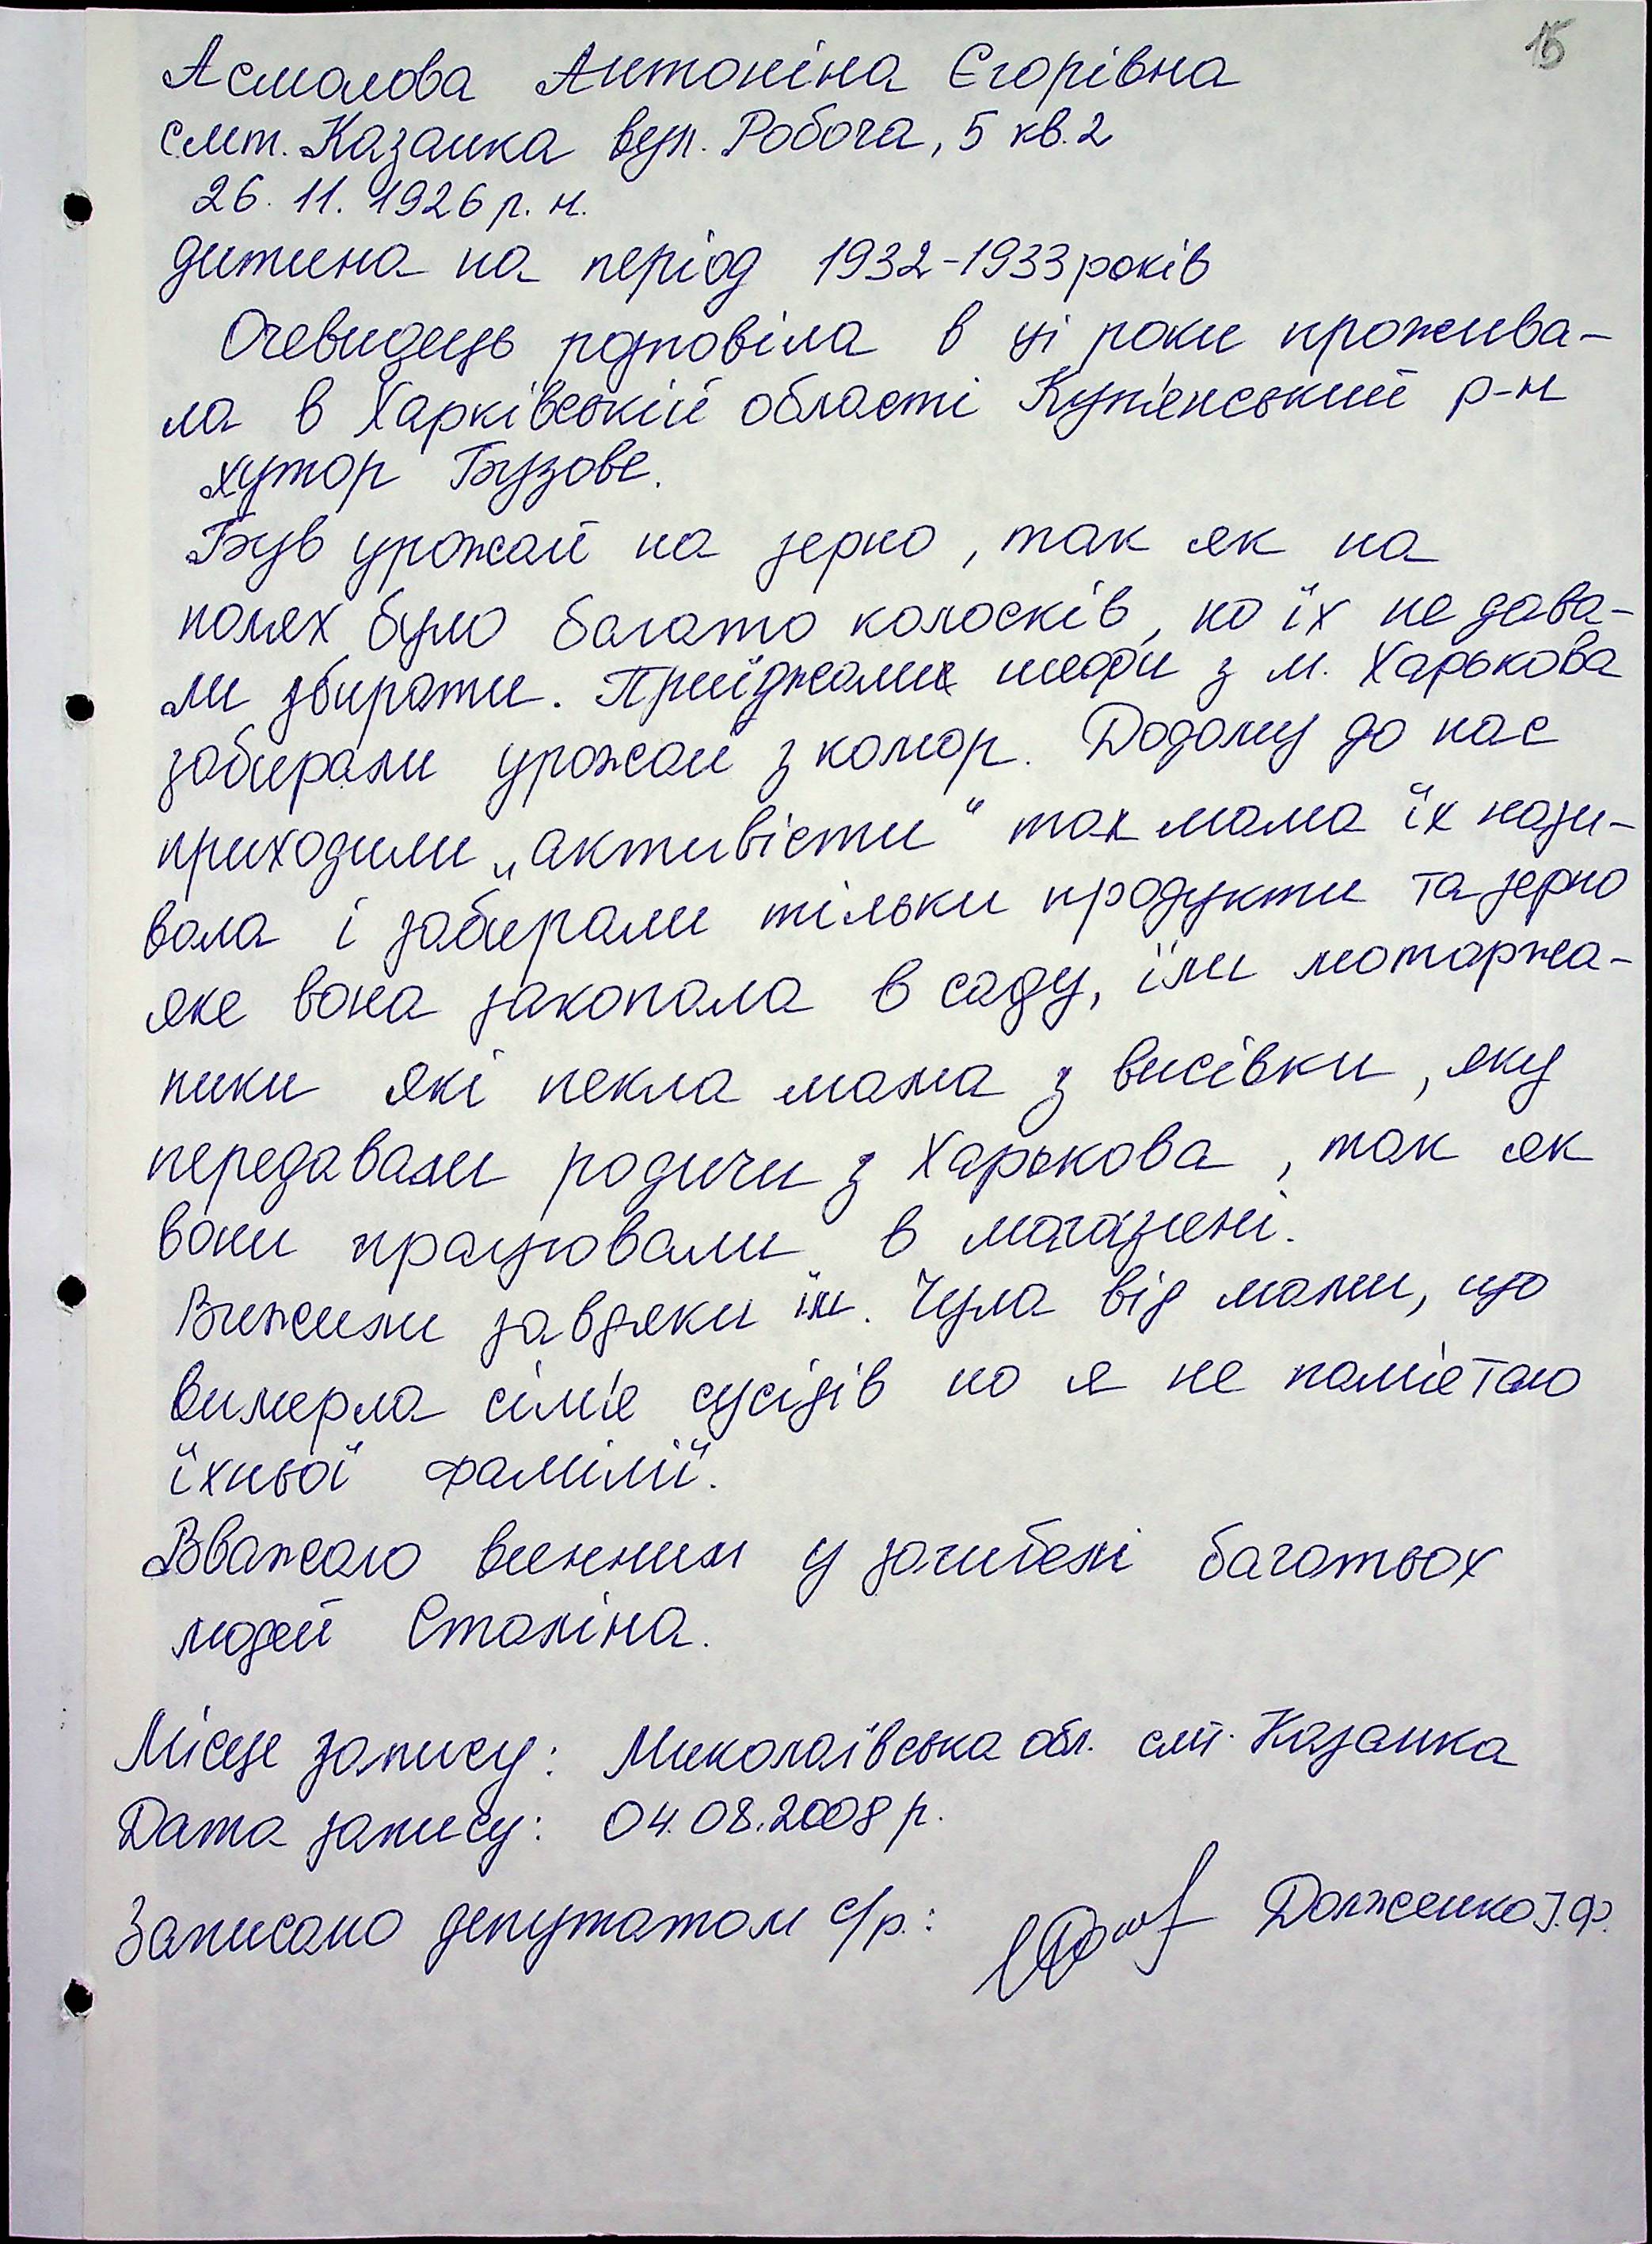 15
Асмолова Антоніна Єгорівна
смт. Казанка вул. Робоча, 5 кв. 2
26. 11. 1926 р. н.
дитина на період 1932-1933 років
Очевидець розповіла в ці роки прожива-
ла в Харківській області Куп'янський р-н
хутор Бузове.
Був урожай на зерно, так як на
полях було багато колосків, но їх не дава-
ли збирати. Приїджали шефи з м. Харькова
забирали урожай з комор. Додому до нас
приходили „активісти" так мама їх нази-
вала і забирали тільки продукти та зерно
яке вона закопала в саду, їли моторжа-
ники які пекла мама з висівки, яку
передавали родичи з Харькова, так як
вони працювали в магазині.
Вижили завдяки їм. Чула від мами, що
вимерла сім'я сусідів но я не пам'ятаю
їхньої фамілії.
Вважаю винним у загибелі багатьох
людей Сталіна.
Місце запису: Миколаївська обл. смт. Казанка
Дата запису: 04.08.2008 р.
Записано депутатом с/р.: Долженко І.Ф.